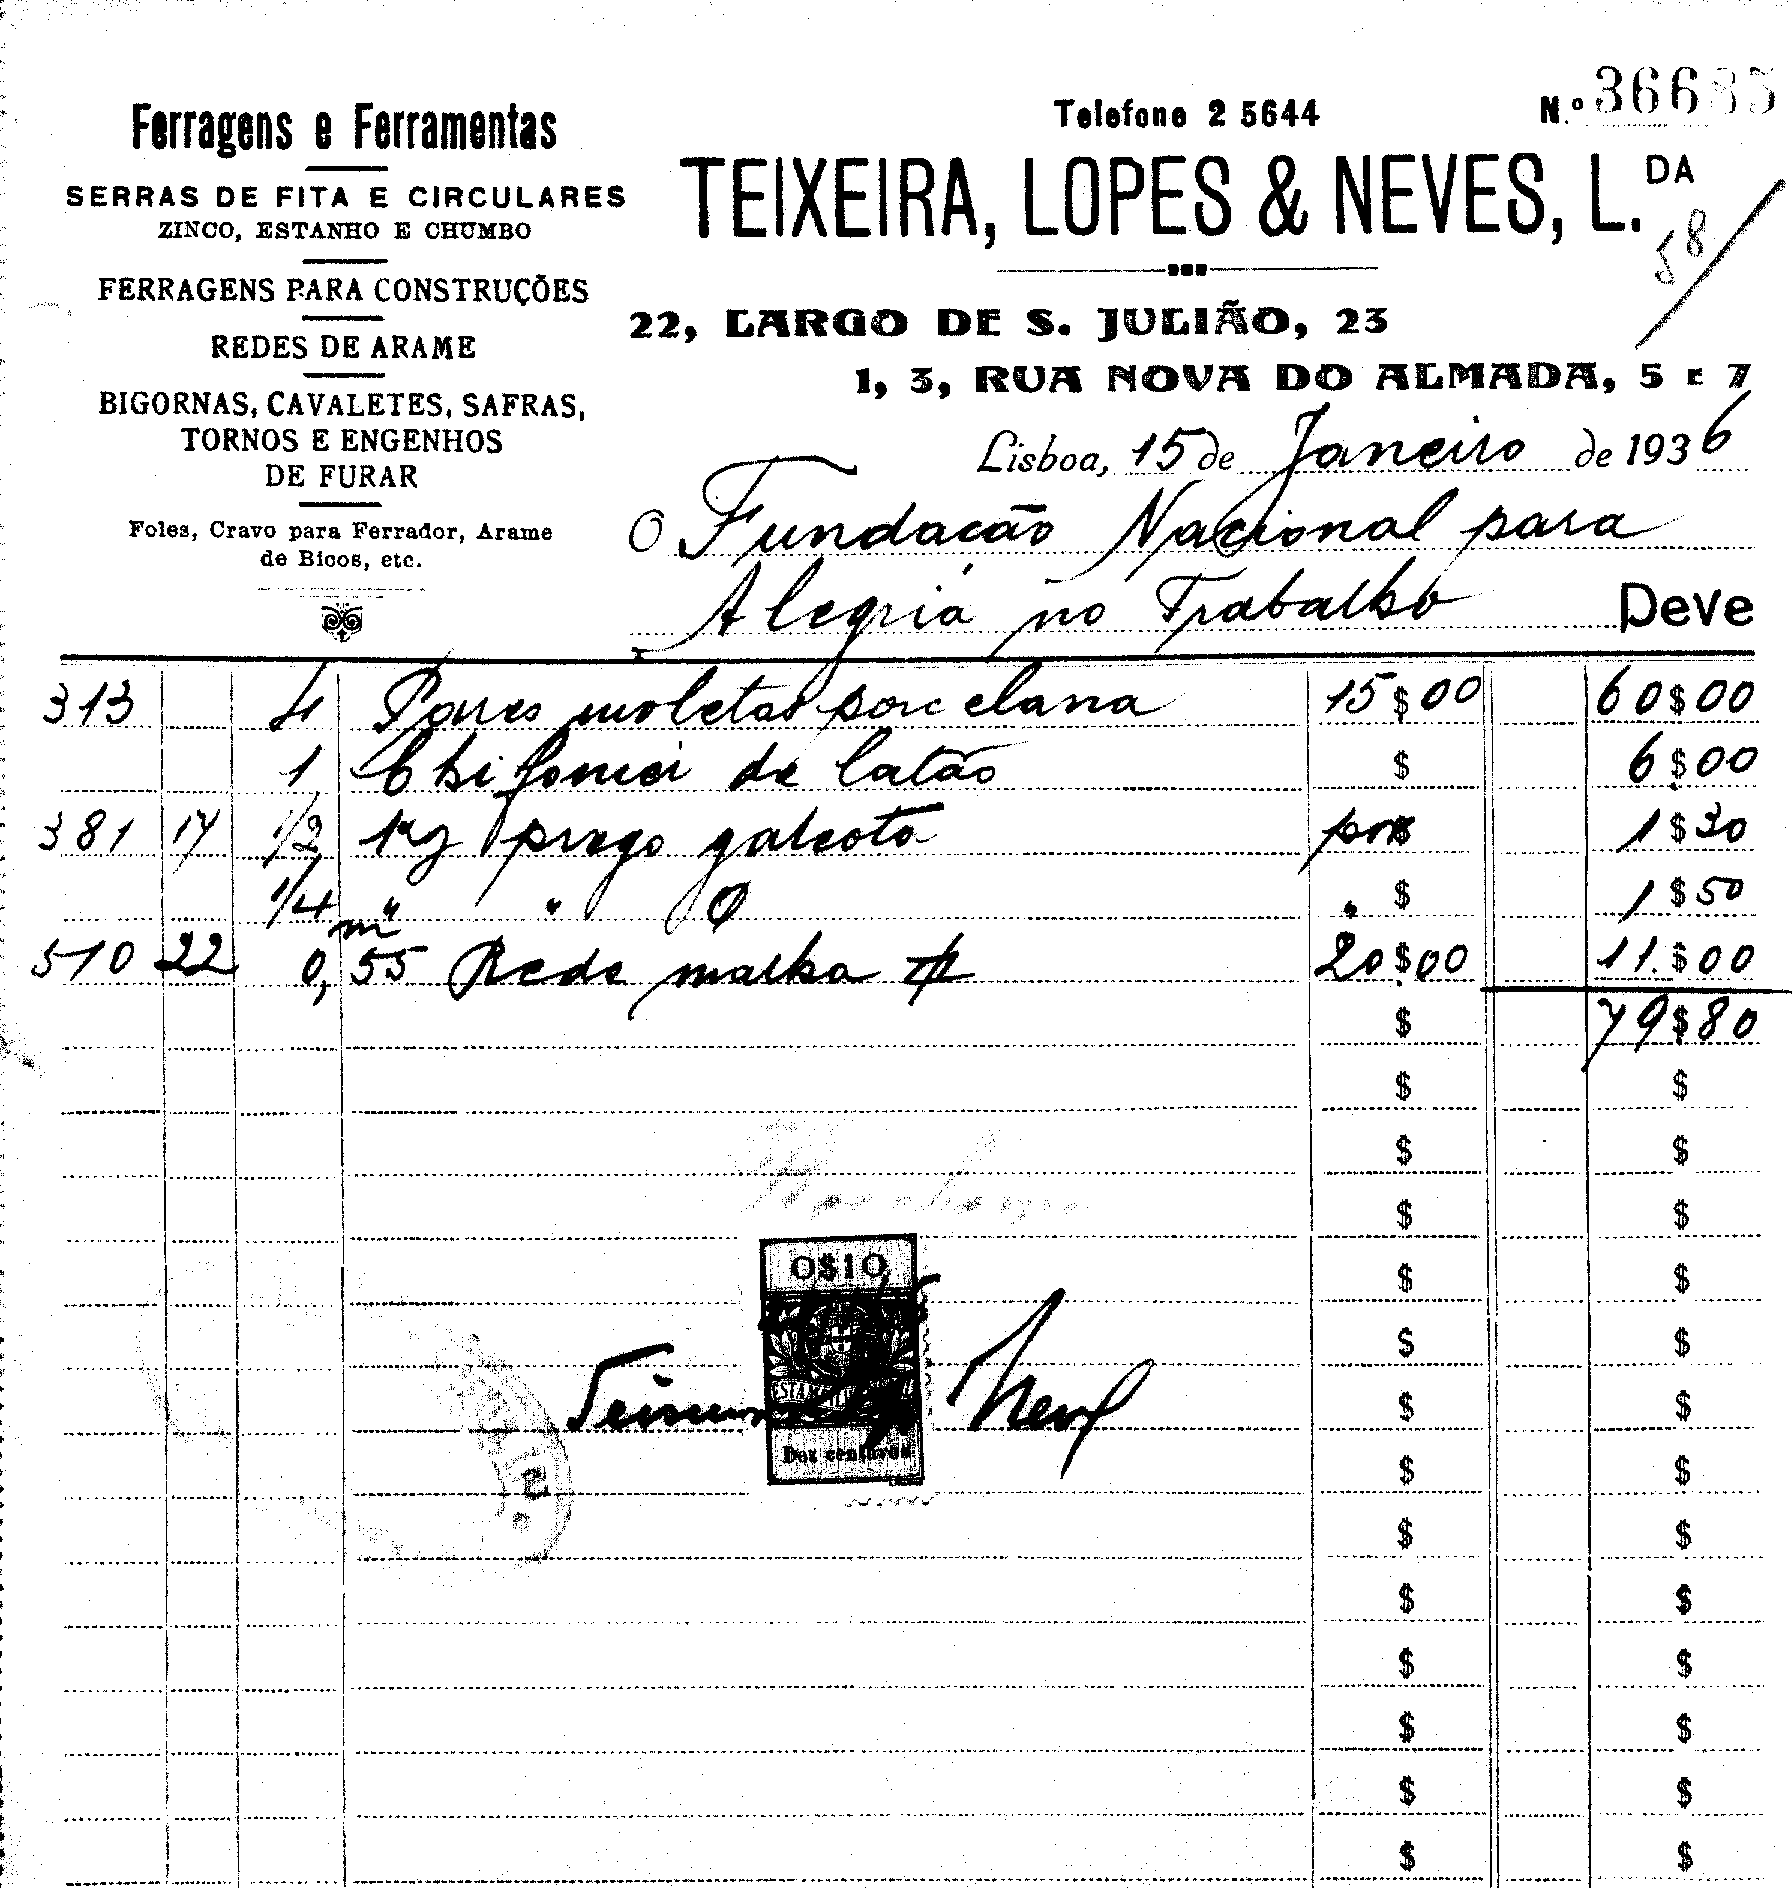 Ferragens e Ferramentas
SERRAS DE FITA E CIRCULARES
ZINCO, ESTANHO E CHUMBO
FERRAGENS PARA CONSTRUÇÕES
REDES DE ARAME
BIGORNAS, CAVALETES, SAFRAS,
TORNOS E ENGENHOS
DE FURAR
Foles, Cravo para Ferrador, Arame
de Bicos, etc.
Telefone 2 5644
N.º 36685
TEIXEIRA, LOPES & NEVES, L.DA
58/
22, LARGO DE S. JULIÃO, 23
1, 3, RUA NOVA DO ALMADA, 5 E 7
Lisboa, 15 de Janeiro de 1936
O Fundação Nacional para
Alegria no Trabalho Deve
313 4 Pares moletas porcelana 15$00 60$00
1 de latão $ 6$00
381 17 1/2 kg prego galeota por 1$30
1/4 " " $ 1$50
510 22 0,m55 Rede malha 20$00 11$00
$ 79$80
$ $
$ $
$ $
$ $
0$10
$ $
$ $
Dez centavos
$ $
$ $
$ $
$ $
$ $
$ $
$ $